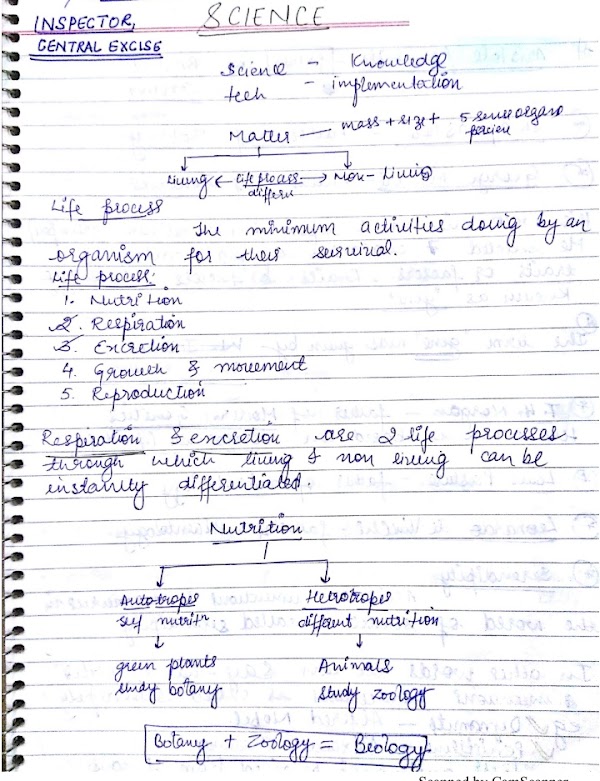 INSPECTOR,
CENTRAL EXCISE
SCIENCE
Science - Knowledge
tech - implementation
Matter — mass + size + 5 sense organs
Living ← life process → Non-Living
Life process
The minimum activities doing by an
organism for their survival.
Life process:
1. Nutrition
2. Respiration
3. Excretion
4. Growth & movement
5. Reproduction
Respiration & excretion are 2 life processes
through which living & non living can be
instantly differentiated.
Nutrition
Autotropes Hetrotropes
self nutritn different nutrition
green plants Animals
study botany study zoology
Botany + Zoology = Biology.
Scanned by CamScanner